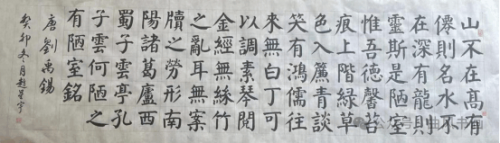 山不在高有
僊則名水不
在深有龍則
靈斯是陋室
惟吾德馨苔
痕上階綠草
色入簾青談
笑有鴻儒往
來無白丁可
以調素琴閱
金經無絲竹
之亂耳無案
牘之勞形南
陽諸葛廬西
蜀子雲亭孔
子雲何陋之
有陋室銘
唐劉禹錫
癸卯冬月
公众号